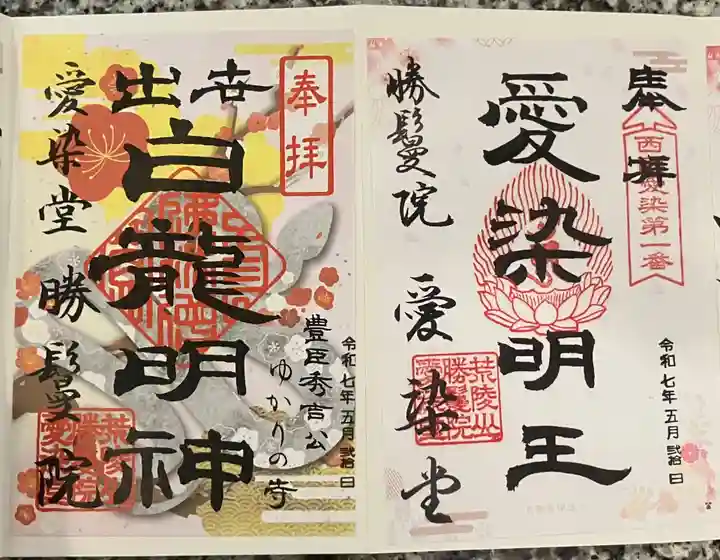 奉拝
西国愛染第一番
愛染明王
勝鬘院 愛染堂
荒陵山
勝鬘院
令和七年五月弐拾日
奉拝
出世
白龍明神
豊臣秀吉公
ゆかりの寺
愛染堂 勝鬘院
令和七年五月弐拾日